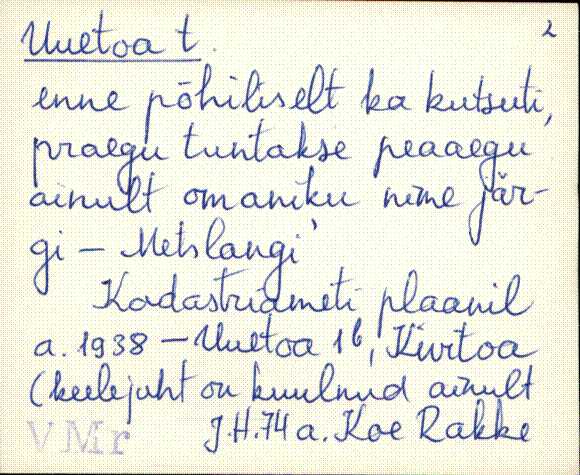 Uuetoa t. 2
enne põhiliselt ka kutsuti,
praegu tuntakse peaaegu
ainult omaniku nime jär-
gi – Metslangi'
Kadastriameti plaanil
a. 1938 – Uuetoa 1b, Kivitoa
(keelejuht on kuulnud ainult
VMr J.H. 74 a. Koe Rakke